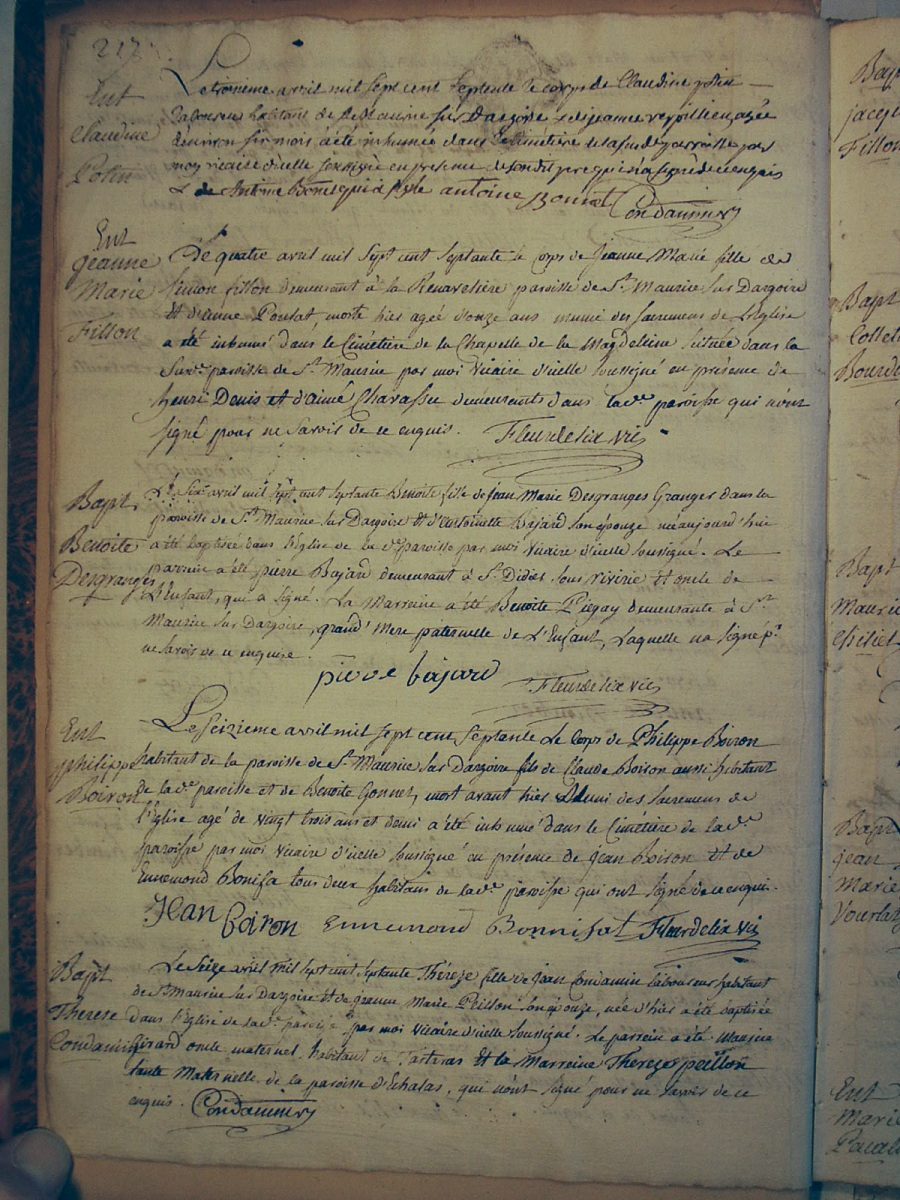 217
Ent
Claudine
Potin
Le troisieme avril mil sept cent septente le corps de Claudine potin
laboureur habitant de st Maurice sur Dargoire & de jeanne agée
d'environ six mois a été inhumée dans le cimetière de la susd. parroisse par
moy vicaire d'icelle soussigné en presence de sondit pere qui n'a signé de ce enquis
& de Antoine Bonnet qui a signé antoine bonnet Condaminvs
Ent
jeanne
Marie
Fillon
De quatre avril mil sept cent septante le corps de jeanne Marie fille de
Simon fillon demeurant à la Renaretiere paroisse de St. Maurice sur Dargoire
et d'anne Ponsat morte hier agée d'onze ans munie des sacremens de L'église
a été inhumé dans le Cimétiére de la Chapelle de la Magdeleine située dans la
Susde. paroisse de St. Maurice par moi Vicaire d'icelle soussigné en présence de
henri Denis et d'aimé Charasse demeurants dans lade. paroisse qui n'ont
signé pour ne savoir de ce enquis. Fleurdelix vic
Bapt
Benoite
Desgranges
Le six avril mil sept cent septante Benoite fille de jean Marie Desgranges Granger dans la
paroisse de St. Maurice sur Dargoire et d'antoinette Bajard son épouze née aujourd'hui
a été baptisée dans l'église de la de. paroisse par moi Vicaire d'icelle soussigné. Le
parrein a été pierre Bajard demeurant à St. Didier sous rivirie et oncle de
L'enfant, qui a signé. La Marreine a été Benoite Piegay demeurante à St.
Maurice sur Dargoire, grand' Mere paternelle de L'Enfant, Laquelle n'a signé pr.
ne savoir de ce enquise.
pierre bajard
Fleurdelix vic
Ent
philippe
Boiron
Le seizieme avril mil sept cent septante Le Corps de Philippe Boiron
habitant de la paroisse de St. Maurice sur Dargoire fils de Claude Boiron aussi habitant
de lade. paroisse et de Benoite Gonnet, mort avant hier Muni des sacremens de
l'église agé de vingt trois ans et demi a été inhumé dans le Cimétiére de lade.
paroisse par moi Vicaire d'icelle soussigné en présence de jean Boiron et de
Ennemond Bonifa tous deux habitans de lade. paroisse qui ont signé de ce enquis.
JEan Boiron Ennemond Bonnifat Fleurdelix vic
Bapt
Therese
Condamin
Le seize avril mil sept cent septante Théreze fille de jean Condamin laboureur habitant
de St Maurice sur Dargoire et de jeanne Marie Peillon son épouze, née d'hier a été baptisée
dans l'église de lade. paroisse par moi Vicaire d'icelle soussigné. Le parrein a été Maurice
Girard oncle maternel habitant de Tartaras et la Marreine Thereze peillon
tante Maternelle de la paroisse d'Echalas, qui n'ont signé pour ne savoir de ce
enquis. Condaminvs
Bapt
jacque
Fillon
Bapt
Bapt
Maurice
Bapt
jean
Marie
Ent
Marie